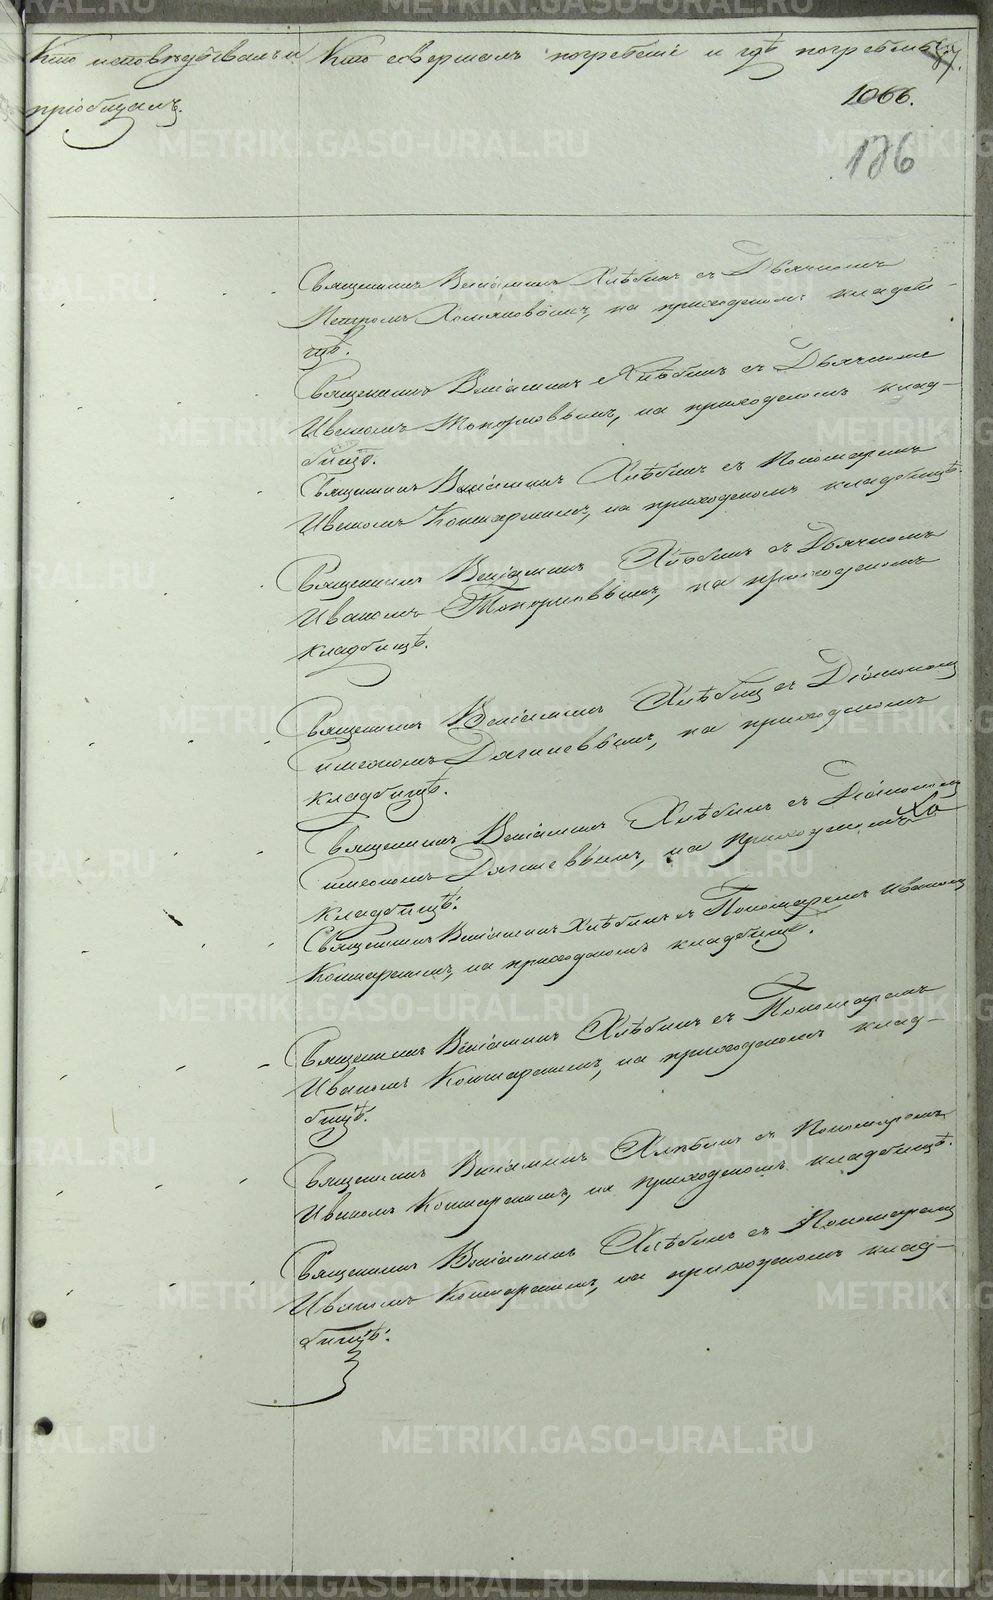 Кто исповѣдывалъ и Кто совершалъ погребенiе и гдѣ погребены 87.
прiобщалъ.
1066.
176
Священникъ Венiаминъ Хлѣбинъ съ Дьячкомъ
Петромъ на приходскомъ кладби-
щѣ.
Священникъ Венiаминъ Хлѣбинъ съ Дьячкомъ
Иваномъ Топорковымъ, на приходскомъ клад-
бищѣ.
Священникъ Венiаминъ Хлѣбинъ съ Пономаремъ
Иваномъ на приходскомъ кладбищѣ.
Священникъ Венiаминъ Хлѣбинъ съ Дьячкомъ
Иваномъ Топорковымъ, на приходскомъ
кладбищѣ.
Священникъ Венiаминъ Хлѣбинъ съ Дiакономъ
Симеономъ Дягилевымъ, на приходскомъ
кладбищѣ.
Священникъ Венiаминъ Хлѣбинъ съ Дiакономъ
Симеономъ Дягилевымъ, на приходскомъ
кладбищѣ.
Священникъ Венiаминъ Хлѣбинъ съ Пономаремъ Иваномъ
на приходскомъ кладбищѣ.
Священникъ Венiаминъ Хлѣбинъ съ Пономаремъ
Иваномъ на приходскомъ клад-
бищѣ.
Священникъ Венiаминъ Хлѣбинъ съ Пономаремъ
Иваномъ на приходскомъ кладбищѣ.
Священникъ Венiаминъ Хлѣбинъ съ Пономаремъ
Иваномъ на приходскомъ клад-
бищѣ.
METRIKI.GASO-URAL.RU